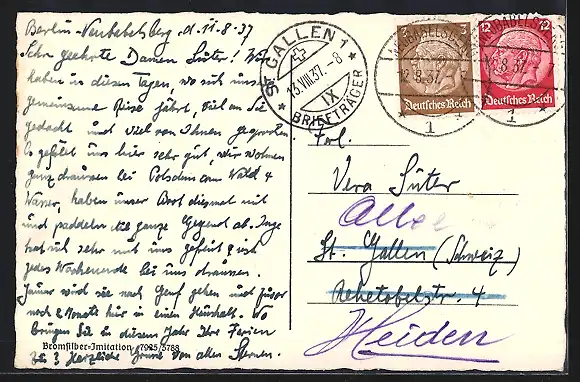 Berlin-Neubabelsberg d. 11.8.37
Sehr geehrte Damen Süter! Wir
haben in diesen Tagen, wo sich unsere
gemeinsame Reise jährt, viel an Sie
gedacht und viel von Ihnen gesprochen.
Es gefällt uns hier sehr gut, wir wohnen
ganz draussen bei Potsdam am Wald &
Wasser, haben unser Boot diesmal mit
und paddeln die ganze Gegend ab. Inge
hat sich sehr mit uns gefreut & ist
jedes Wochenende bei uns draussen.
Januar wird sie nach Genf gehen und zuvor
noch 2 Monate hier in einen Haushalt. Wo
bringen Sie in diesem Jahr Ihre Ferien
zu? Herzliche Grüsse von allen Sternen.
Bromsilber-Imitation 7925/5788
ST. GALLEN 1
13.VIII.37.-8
IX
BRIEFTRÄGER
3
Deutsches Reich
12
Deutsches Reich
NEUBABELSBERG
12.8.37
1
NEUBABELSBERG
12.8.37
1
Frl.
Vera Süter
St. Gallen (Schweiz)
Rehetobelstr. 4
Heiden